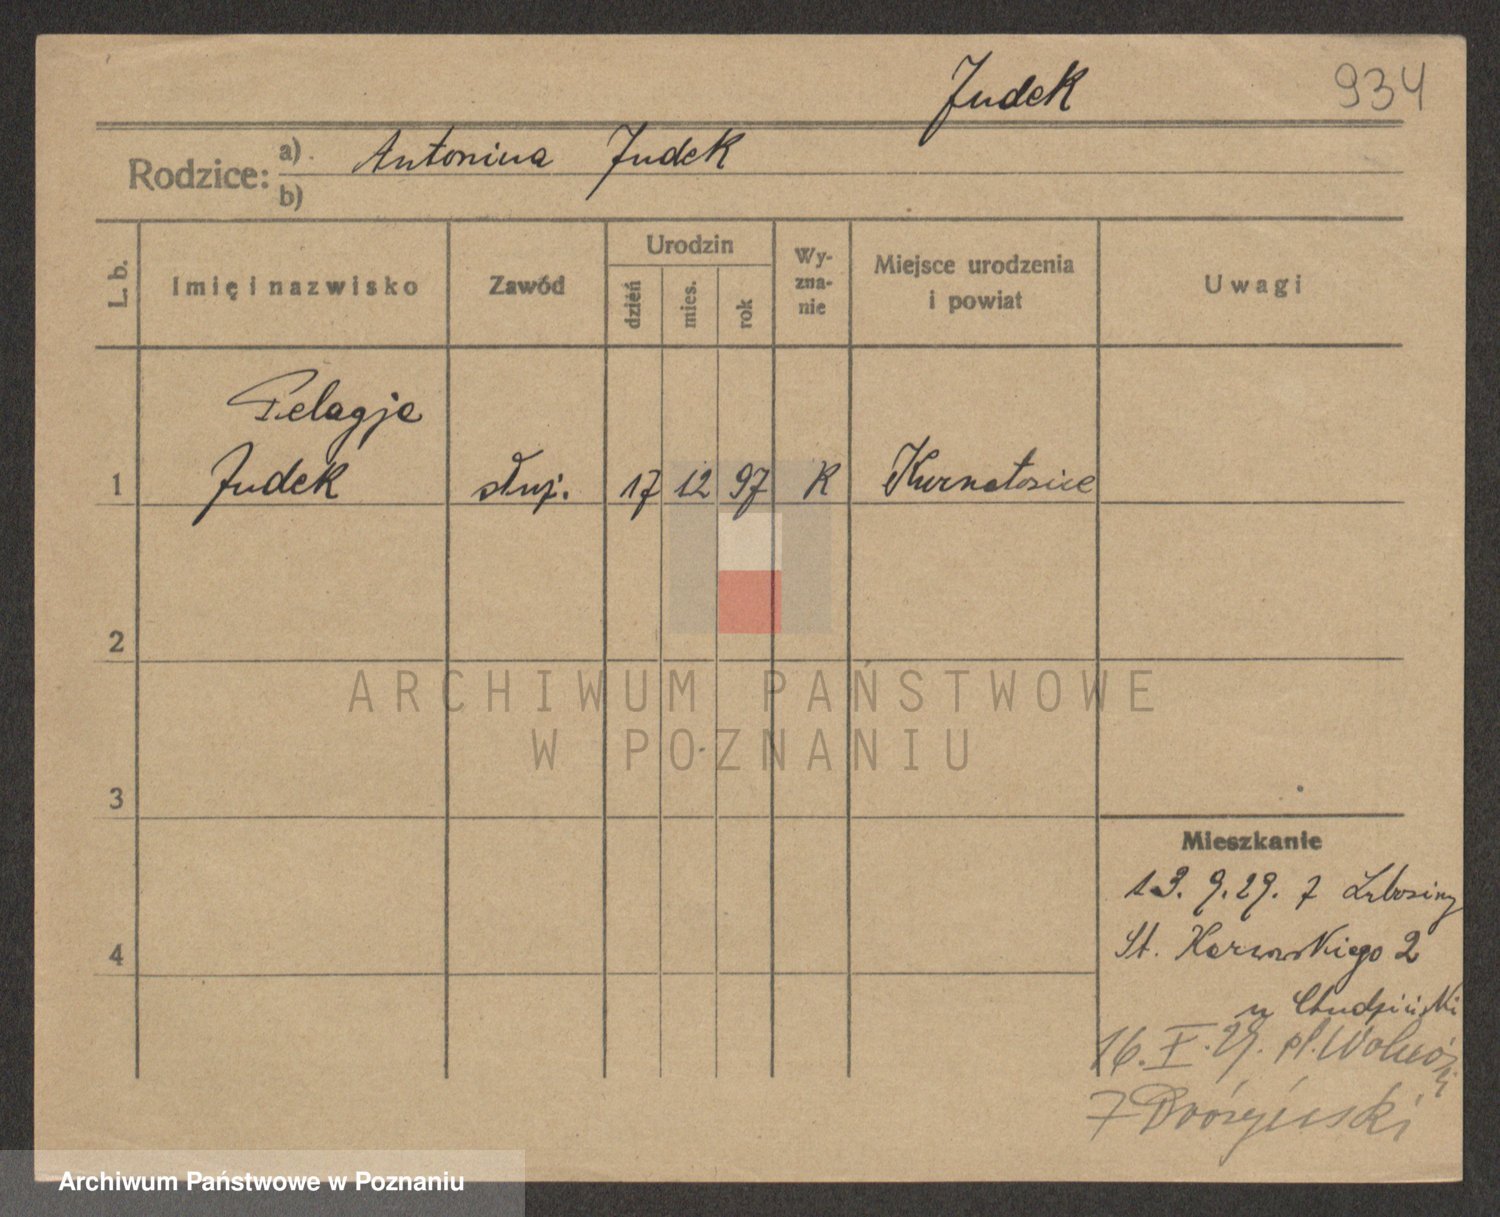 Judek 934
Rodzice: a) Antonina Judek
b)
L. b. Imię i nazwisko Zawód Urodzin dzień mies. rok Wyznanie Miejsce urodzenia i powiat Uwagi
Pelagja
1 Judek służ. 17 12 97 K Kurnatowice
2
3
4
Mieszkanie
13. 9. 29. z
St. Karwowskiego 2
u Chudziński
16. X. 29. pl. Wolności
7
ARCHIWUM PAŃSTWOWE
W POZNANIU
Archiwum Państwowe w Poznaniu